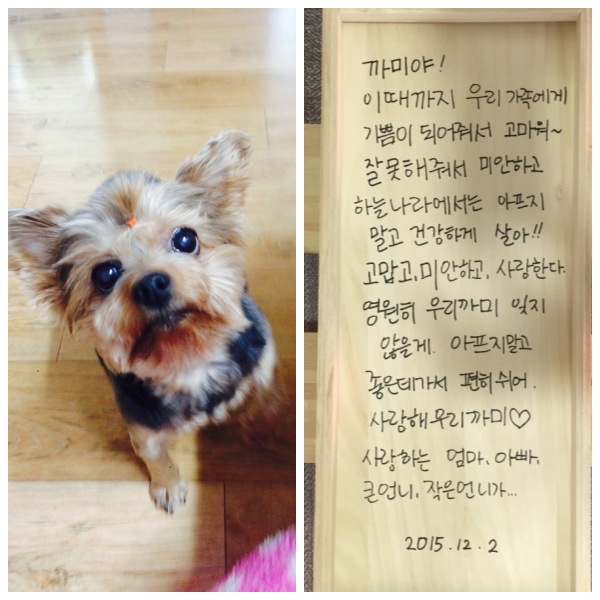 까미야!
이때까지 우리 가족에게
기쁨이 되어줘서 고마워~
잘 못해줘서 미안하고
하늘나라에서는 아프지
말고 건강하게 살아!!
고맙고, 미안하고, 사랑한다.
영원히 우리까미 잊지
않을게. 아프지말고
좋은데가서 편히쉬어.
사랑해우리까미♡
사랑하는 엄마, 아빠,
큰언니, 작은언니가...
2015.12.2